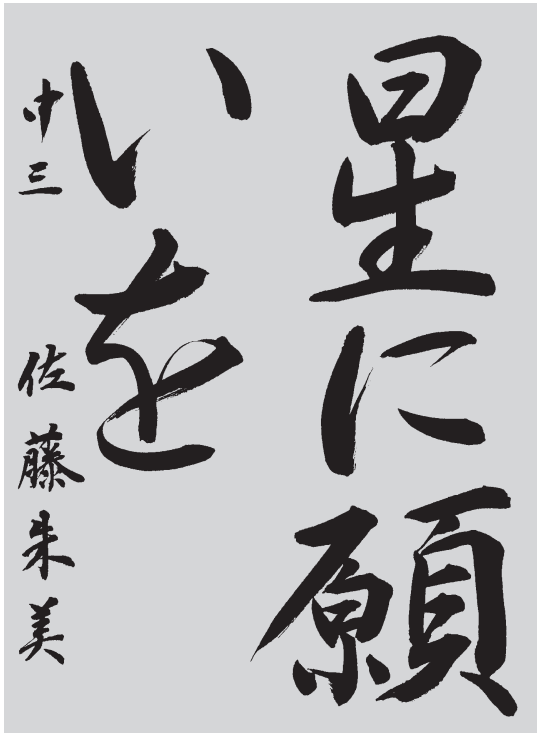 星に願
いを
中三 佐藤朱美